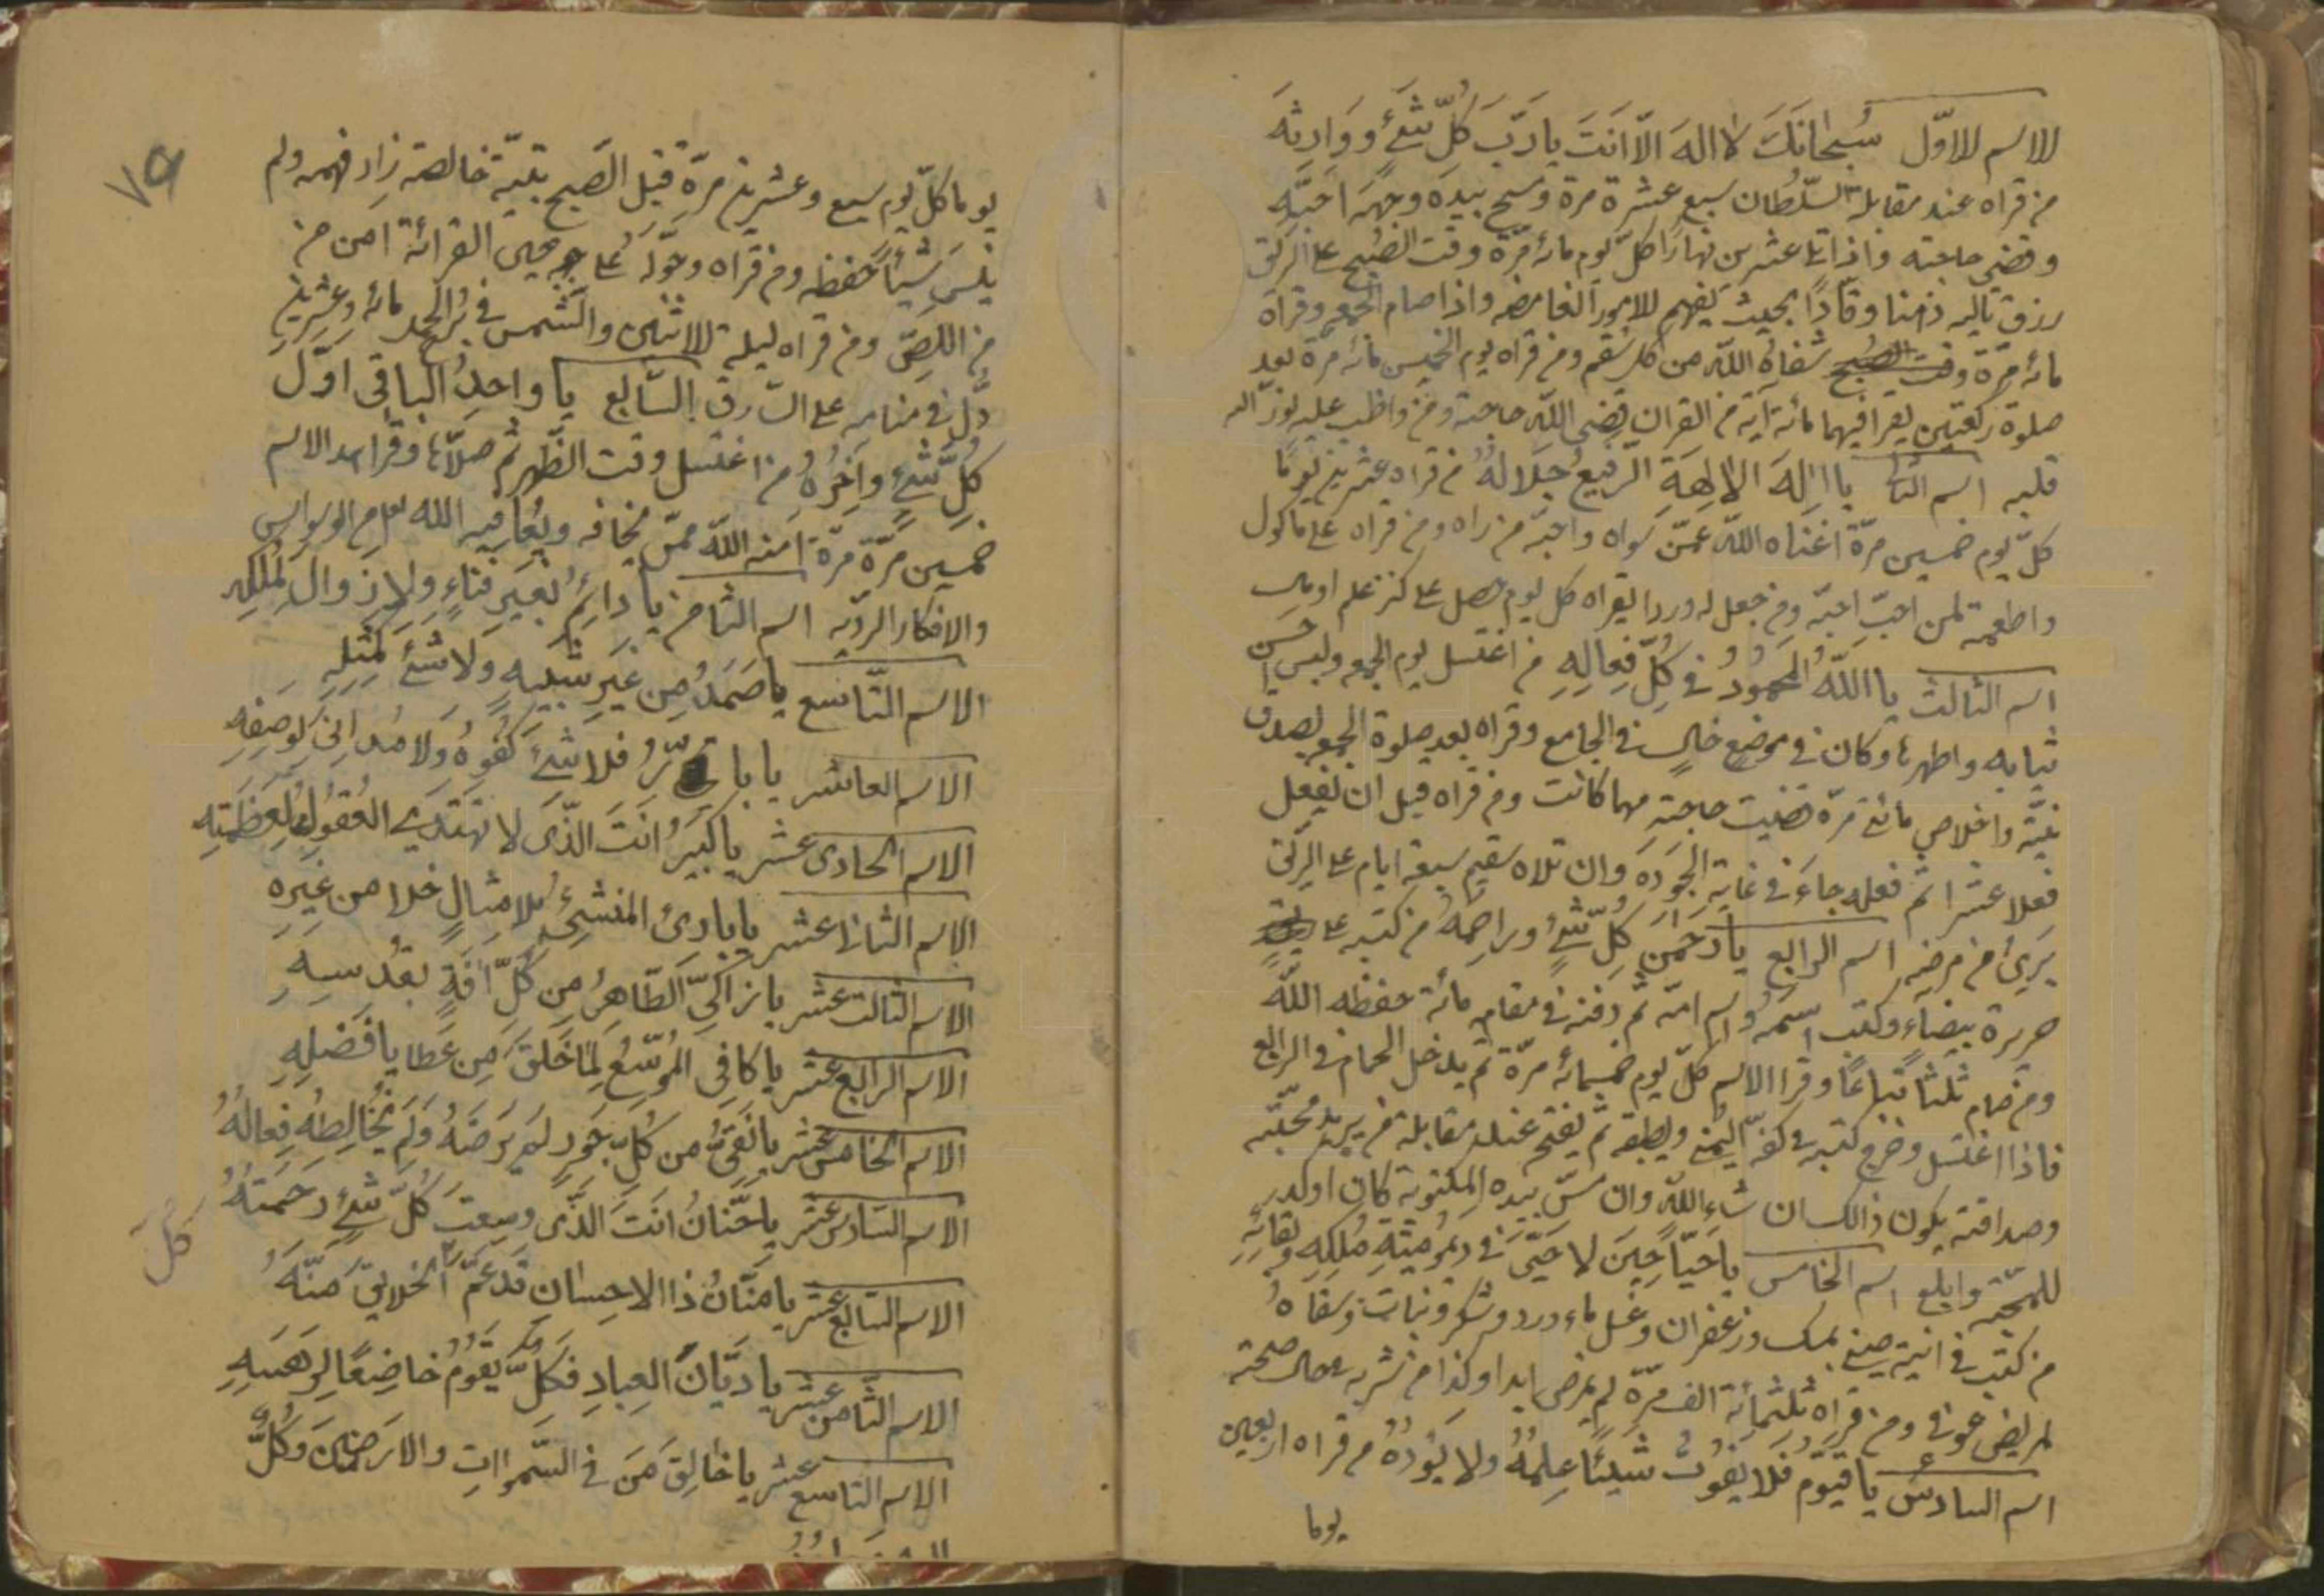 الاسم الاوّل سُبحانَكَ لا الهَ الّا انَتَ يارَبَّ كُلِّ شَئٍ وَوَارِثَهُ
من قراه عند مقابلة السّلطان سبع عشرة مرة ومسح بيده وجهَه احبّه
وقضى حاجته واذا تلى عشرين نهارًا كلّ يوم مائة مرّة وقت الصّبح على الريق
رزق تاليه ذهنا وقّادًا بحيث يفهم الامور الغامضه واذا صام الجمعه وقراه
مائة مرّة وقت الصّبح شفاه اللّه من كل سقم ومن قراه يوم الخميس مائة مرّة بعد
صلوة ركعتين يقرا فيهما مائة آية من القران يقضى اللّه حاجته ومن واظب عليه نوّر اله
قلبه اسم الثانى يا اِلهَ الالِهَةِ الرّفيعُ جَلالُهُ من قراه عشرين يومًا
كلّ يوم خمسين مرّة اغناه اللّه عمّن سواه واحبّه من راه ومن قراه على ماكول
واطعمه لمن احبّ احبّه ومن جعل له وردا يقراه كل يوم حصل على كنز علم او مال
اسم الثالث يا اللّهُ المحَمُودُ في كُلِّ فِعالِهِ من اغتسل يوم الجمعه ولبس احسن
ثيابه واطهرها وكان في موضع خالٍ في الجامع وقراه بعد صلوة الجمعه بصدق
نيّة واخلاص مائتى مرّة قضيت حاجته مهما كانت ومن قراه قبل ان يفعل
فعلا عشرا ثم فعله جاءَ في غاية الجَودَه وان تلاه سقيم سبعة ايام على الريق
يَرىءَ من مرضه اسم الرابع يارَحمنَ كُلِّ شَئٍ وراحِمَهُ من كتبه على
حريرة بيضاءَ وكتب اسمه واسم امّه ثم دفنه في مقامه مائة حفظه اللّه
ومن صام ثلثا تباعًا وقرا الاسم كلّ يوم خمسمائة مرّة ثم يدخل الحمام في الرابع
فاذا اغتسل وخرج كتبه في كفّه اليمنى ويطبقه ثم يفتح عند مقابلة من يريد محبّته
وصداقته يكون ذالك ان شاء اللّه وان مسّ بيده المكتوبة كان اوكد
للمحبّة وابلغ اسم الخامس ياحَيّا حِينَ لا حَىَّ في دَيمُوميّةِ مُلكِهِ وبَقائهِ
من كتب في انية صينى بمسك وزعفران وغسل بماء ورد وشكر ونبات وسقاهُ
لمريض عوفى ومن قراه ثلثمائة الف مرّة لم يمرض ابدا وكذا من شربه حال صحته
اسم السادس ياقيّوم فلا يفوتُ شيئًا عِلمُهُ ولا يَؤدُهُ من قراه اربعين
يوما
يوما كلّ يوم سبع وعشرين مرّة قبل الصّبح بنيّة خالصة زاد فهمه ولم
ينسَ شيئًا حفظه ومن قراه وحوّله على محيى القرائة امن من
من اللّصّ ومن قراه ليلة الاثنين والشمس في برج الجد مائة وعشرين
دلّ في منامه على السّارق السّابع ياواحِدُ الباقى اوّلَ
كُلِّ شَئٍ واَخِرُهُ من اغتسل وقت الظّهر ثم صلّاها وقرا هذا الاسم
خمسين مرّة مرّة امنه اللّه ممّن يخافه ويعافيه اللّه من الوسواس
والافكار الرّديه اسم الثامن يا دائِمُ بغَيرِ فَناءٍ ولا زوالَ لِمُلكِهِ
الاسم التّاسع ياصَمَدُ مِن غَيرِ شبيهٍ ولاشَئَ كمَثلِهِ
الاسم العاشر يابارُّ فلاشَئَ كُفوُهُ ولامُدانىَ لوَصفِهِ
الاسم الحادى عشر ياكَبيرُ انَتَ الذّى لا تَهتَدى العُقوُلُ لِعَظَمتِهِ
الاسم الثانى عشر ياباريُ المنشِئُ بلامثالٍ خلا من غيرِهِ
الاسم الثالث عشر يازاكىَّ الطّاهرُ مِن كُلِّ افَةٍ بقُدسِهِ
الاسم الرابع عشر ياكافى الموُسّعُ لِمَا خَلقَ مِن عَطايا فَضلِهِ
الاسم الخامس عشر يانَقىُّ من كُلِّ جَورٍ لَم يَرضَهُ ولَم يُخالِطهُ فِعالُهُ
الاسم السّادس عشر ياحَنّانُ انَتَ الذّى وسِعَت كُلَّ شَئٍ رَحمَتهُ
الاسم السّابع عشر يامَنّانُ ذا الاحِسانِ قَد عَمَّ الخَلايقَ مَنّهُ
الاسم الثّامن عشر ياديّانَ العِبادِ فَكُلٌّ يَقُومُ خاضِعًا لِرَهبَتِهِ
كُلٌّ
الاسم التاسع عشر ياخالِقَ مَن في السّمواتِ والارَضينَ وكُلٌّ